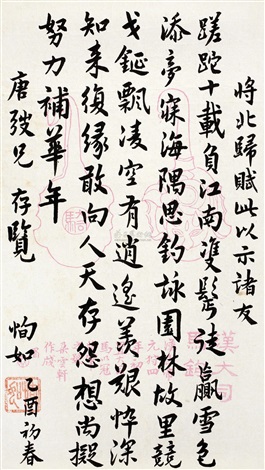 將北歸賦此以示諸友
蹉跎十載負江南雙鬢徒贏雪色
添夢寐海隅思釣詠園林故里競
戈鋋飄凌空有逍遙羨艱悴深
知來復緣敢向人天存怨想尚擬
努力補華年
唐弢兄 存覽
恂如 乙酉初春